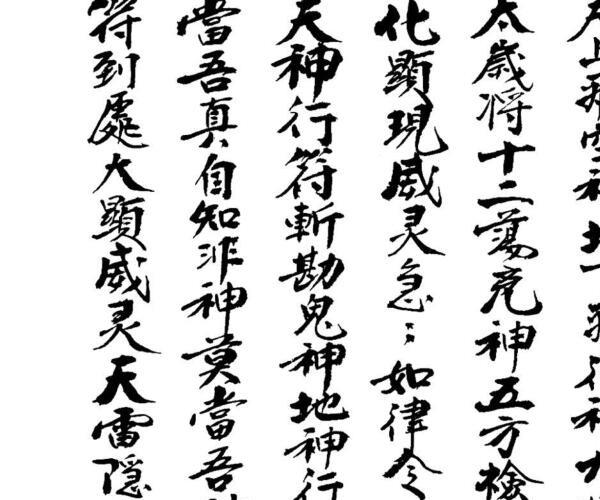 上神地行神
太歲将十二蕩兇神五方檢
化顯現威灵急〻如律令
天神行符斬勘鬼神地神行
當吾真自知非神莫當吾
符到處大顯威灵天雷隱